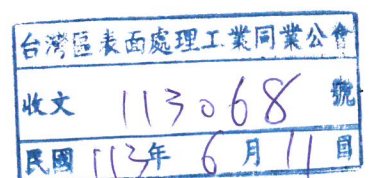 台灣區表面處理工業同業公會
收文 113068 號
民國 113年 6 月 11 日